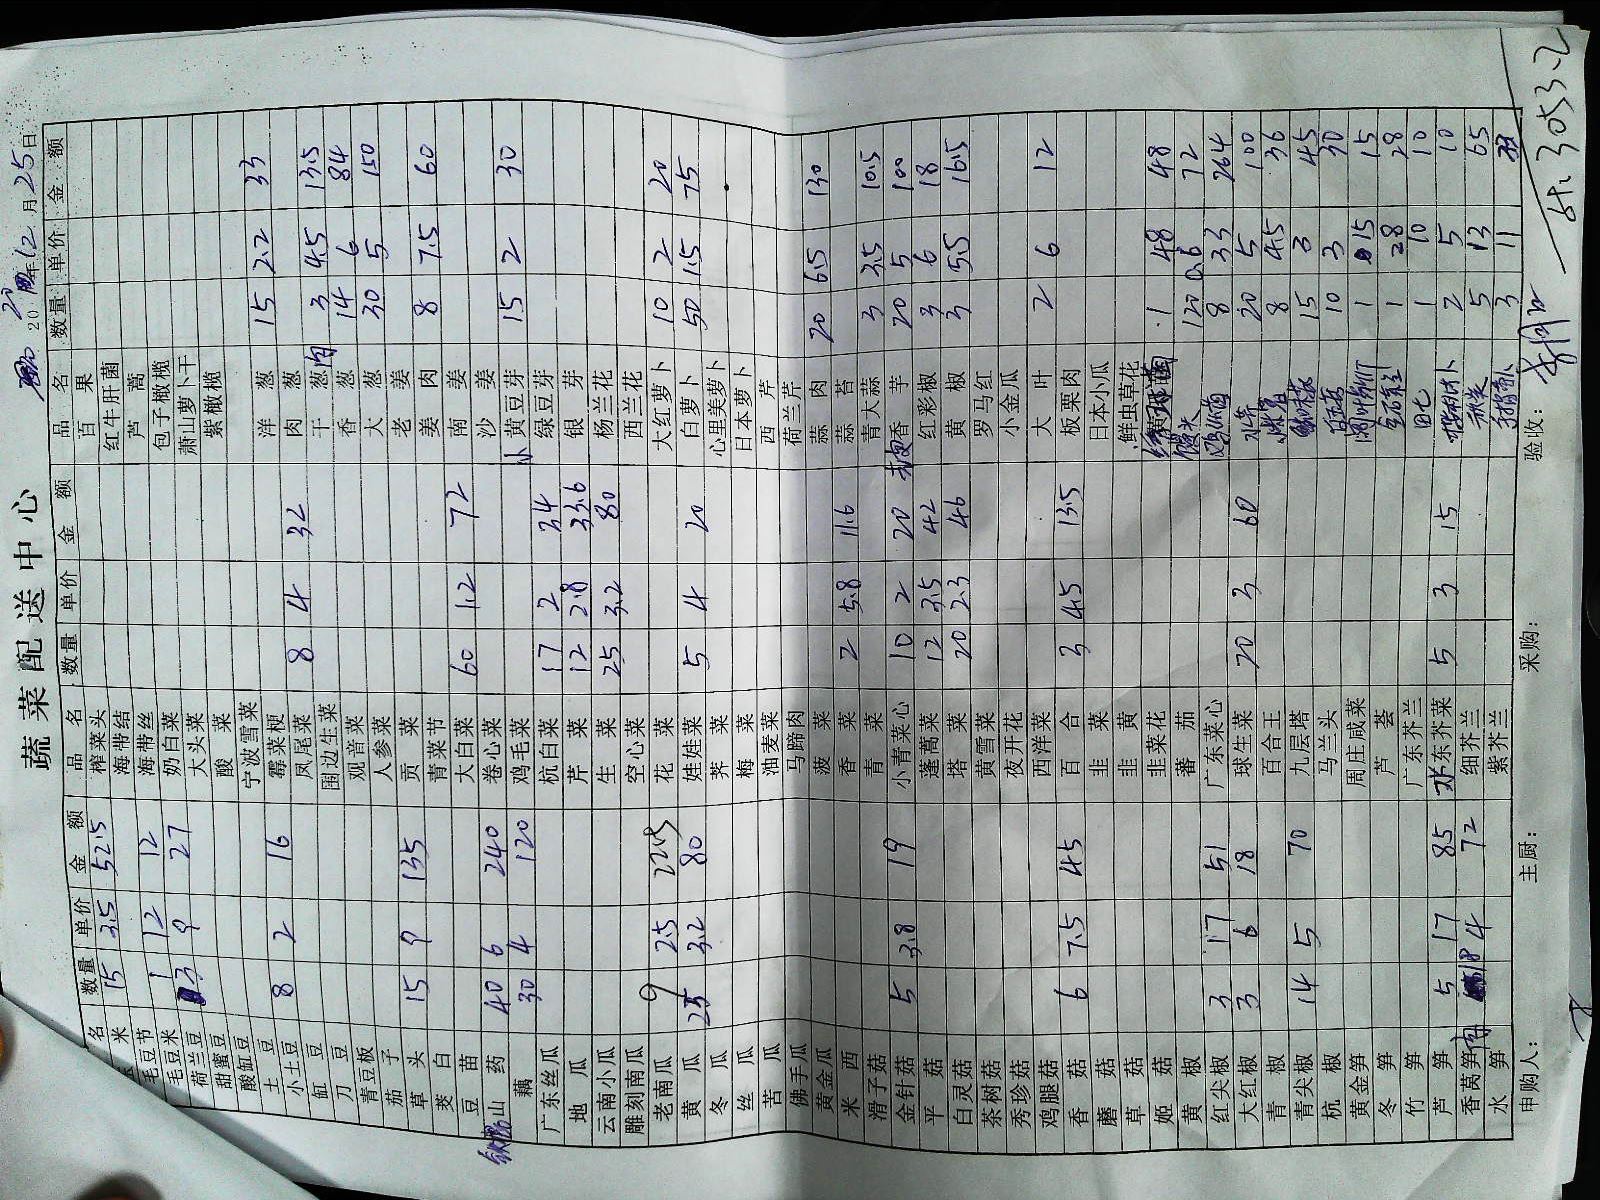 蔬菜配送中心
2012年12月25日
品名 数量 单价 金额 品名 数量 单价 金额 品名 数量 单价 金额
玉米 15 3.5 52.5 榨菜头 百果
毛豆节 1 12 12 海带结 红牛肝菌
毛豆米 3 9 27 海带丝 芦蒿
荷兰豆 奶白菜 包子橄榄
甜蜜豆 大头菜 萧山萝卜干
酸缸豆 酸菜 紫橄榄
土豆 8 2 16 宁波雪菜
小土豆 霉菜梗 洋葱 15 2.2 33
缸豆 凤尾菜 8 4 32 肉葱
刀豆 围边生菜 干葱肉 3 4.5 13.5
青豆板 观音菜 香葱 14 6 84
茄子 人参菜 大葱 30 5 150
草头 15 9 135 贡菜 老姜
茭白 青菜节 姜肉 8 7.5 60
豆苗 大白菜 60 1.2 72 南姜
山药 40 6 240 卷心菜 沙姜
藕 30 4 120 鸡毛菜 小黄豆芽 15 2 30
广东丝瓜 杭白菜 17 2 34 绿豆芽
地瓜 芹菜 12 2.8 33.6 银芽
云南小瓜 生菜 25 3.2 80 杨兰花
雕刻南瓜 空心菜 西兰花
老南瓜 9 2.5 22.5 花菜 大红萝卜 10 2 20
黄瓜 25 3.2 80 娃娃菜 5 4 20 白萝卜 50 1.5 75
冬瓜 荠菜 心里美萝卜
丝瓜 梅菜 日本萝卜
苦瓜 油麦菜 西芹
佛手瓜 马蹄肉 荷兰芹
黄金瓜 菠菜 蒜肉 20 6.5 130
米西 香菜 2 5.8 11.6 蒜苔
滑子菇 青菜 青大蒜 3 3.5 10.5
金针菇 5 3.8 19 小青菜心 10 2 20 香芋 20 5 100
平菇 蓬蒿菜 12 3.5 42 红彩椒 3 6 18
白灵菇 塔菜 20 2.3 46 黄椒 3 5.5 16.5
茶树菇 黄雪菜 罗马红
秀珍菇 夜开花 小金瓜
鸡腿菇 西洋菜 大叶 2 6 12
香菇 6 7.5 45 百合 3 4.5 13.5 板栗肉
蘑菇 韭菜 日本小瓜
草菇 韭黄 鲜虫草花
姬菇 韭菜花 1 48 48
黄椒 番茄 馒头 120 0.6 72
红尖椒 3 17 51 广东菜心 8 33 264
大红椒 3 6 18 球生菜 20 3 60 水芹 20 5 100
青椒 百合王 8 4.5 36
青尖椒 14 5 70 九层塔 15 3 45
杭椒 马兰头 10 3 30
黄金笋 周庄咸菜 1 15 15
冬笋 芦荟 1 28 28
竹笋 广东芥兰 1 10 10
芦笋 5 17 85 水东芥菜 5 3 15 2 5 10
香莴笋 18 4 72 细芥兰 5 13 65
水笋 紫芥兰 3 11 33
申购人: 主厨: 采购: 验收:
3053.2